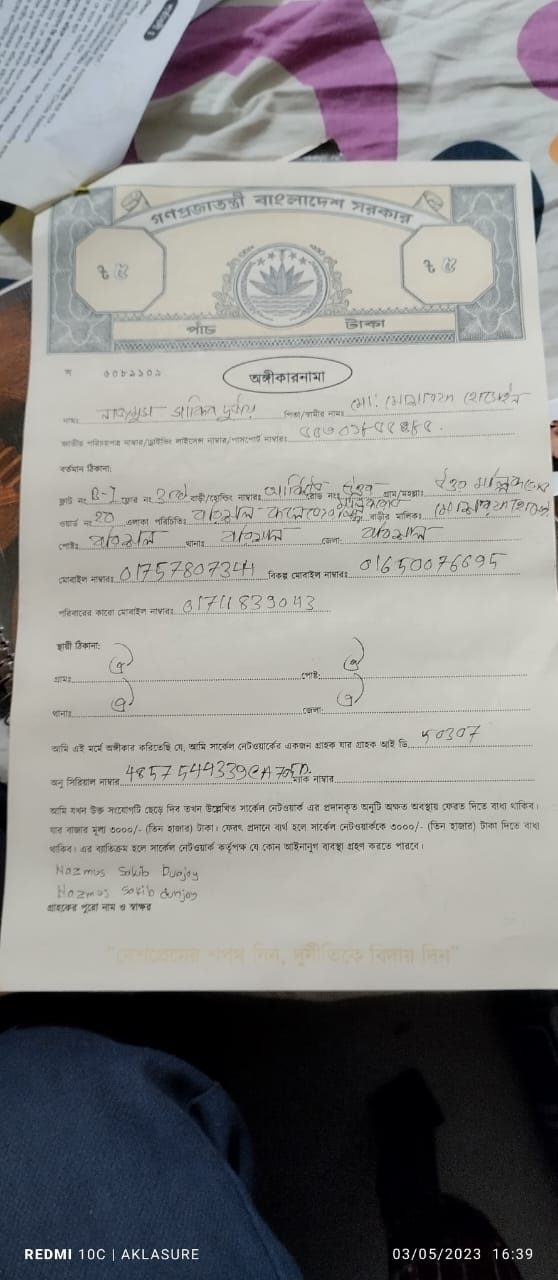 গণপ্রজাতন্ত্রী বাংলাদেশ সরকার
৳ ৫ ৳ ৫
পাঁচ টাকা
অঙ্গীকারনামা
নাম: পিতা/স্বামীর নাম: মো:
জাতীয় পরিচয়পত্র নাম্বার/ড্রাইভিং লাইসেন্স নাম্বার/পাসপোর্ট নাম্বার:
বর্তমান ঠিকানা:
ফ্লাট নং B-7 ফ্লোর নং 3rd বাড়ী/হোল্ডিং নাম্বার: রোড নং গ্রাম/মহল্লা:
ওয়ার্ড নং ২০ এলাকা পরিচিতি: বরিশাল কলেজের বাড়ীর মালিক:
পোষ্ট: বরিশাল থানা: বরিশাল জেলা: বরিশাল
মোবাইল নাম্বার: 01757807344 বিকল্প মোবাইল নাম্বার: 01650076695
পরিবারের কারো মোবাইল নাম্বার: 01711839043
স্থায়ী ঠিকানা:
গ্রাম: ঐ পোষ্ট: ঐ
থানা: ঐ জেলা: ঐ
আমি এই মর্মে অঙ্গীকার করিতেছি যে, আমি সার্কেল নেটওয়ার্কের একজন গ্রাহক যার গ্রাহক আই ডি 50307
অনু সিরিয়াল নাম্বার 4857544339CA70 ম্যাক নাম্বার
আমি যখন উক্ত সংযোগটি ছেড়ে দিব তখন উল্লেখিত সার্কেল নেটওয়ার্ক এর প্রদানকৃত অনুটি অক্ষত অবস্থায় ফেরত দিতে বাধ্য থাকিব।
যার বাজার মূল্য ৩০০০/- (তিন হাজার) টাকা। ফেরৎ প্রদানে ব্যর্থ হলে সার্কেল নেটওয়ার্ককে ৩০০০/- (তিন হাজার) টাকা দিতে বাধ্য
থাকিব। এর ব্যতিক্রম হলে সার্কেল নেটওয়ার্ক কর্তৃপক্ষ যে কোন আইনানুগ ব্যবস্থা গ্রহণ করতে পারবে।
Nazmus Sakib Durjoy
Nazmus Sakib durjoy
গ্রাহকের পুরো নাম ও স্বাক্ষর
"দেশপ্রেমের শপথ নিন, দুর্নীতিকে বিদায় দিন"
REDMI 10C | AKLASURE 03/05/2023 16:39